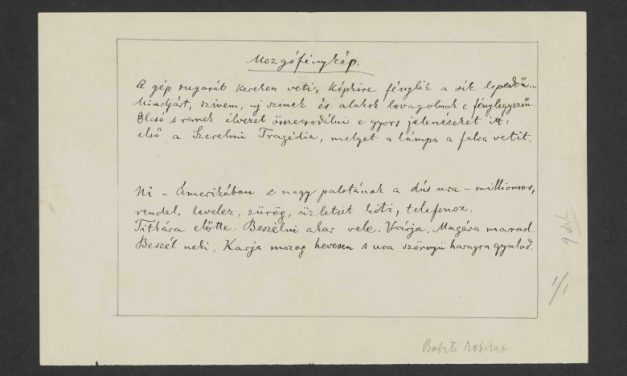 Mozgófénykép.
A gép sugarát kereken veti, képköre fénylik a sík lepedőn.
Mindjárt, szivem, új szinek és alakok lovagolnak e fénylegyezőn.
Olcsó s remek élvezet összecsodálni e gyors jelenéseket itt:
első a Szerelmi Tragédia, melyet a lámpa a falra vetit.
Ni – Amerikában e nagy palotának a dús ura – milliomos,
rendel, levelez, sürög, üzletit köti, telefonoz.
Titkára előtte. Beszélni akar vele. Várja. Magára marad.
Beszél neki. Karja mozog hevesen s ura szörnyű haragra gyulad.
1/1